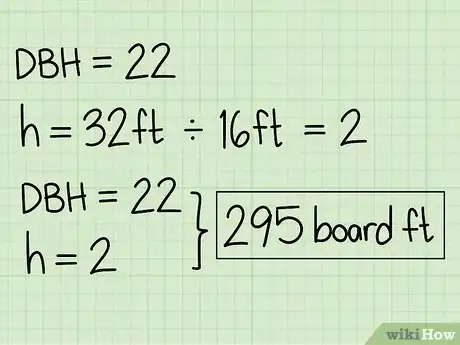 DBH = 22
h = 32ft ÷ 16ft = 2
DBH = 22
h = 2
295 board ft
wikiHow